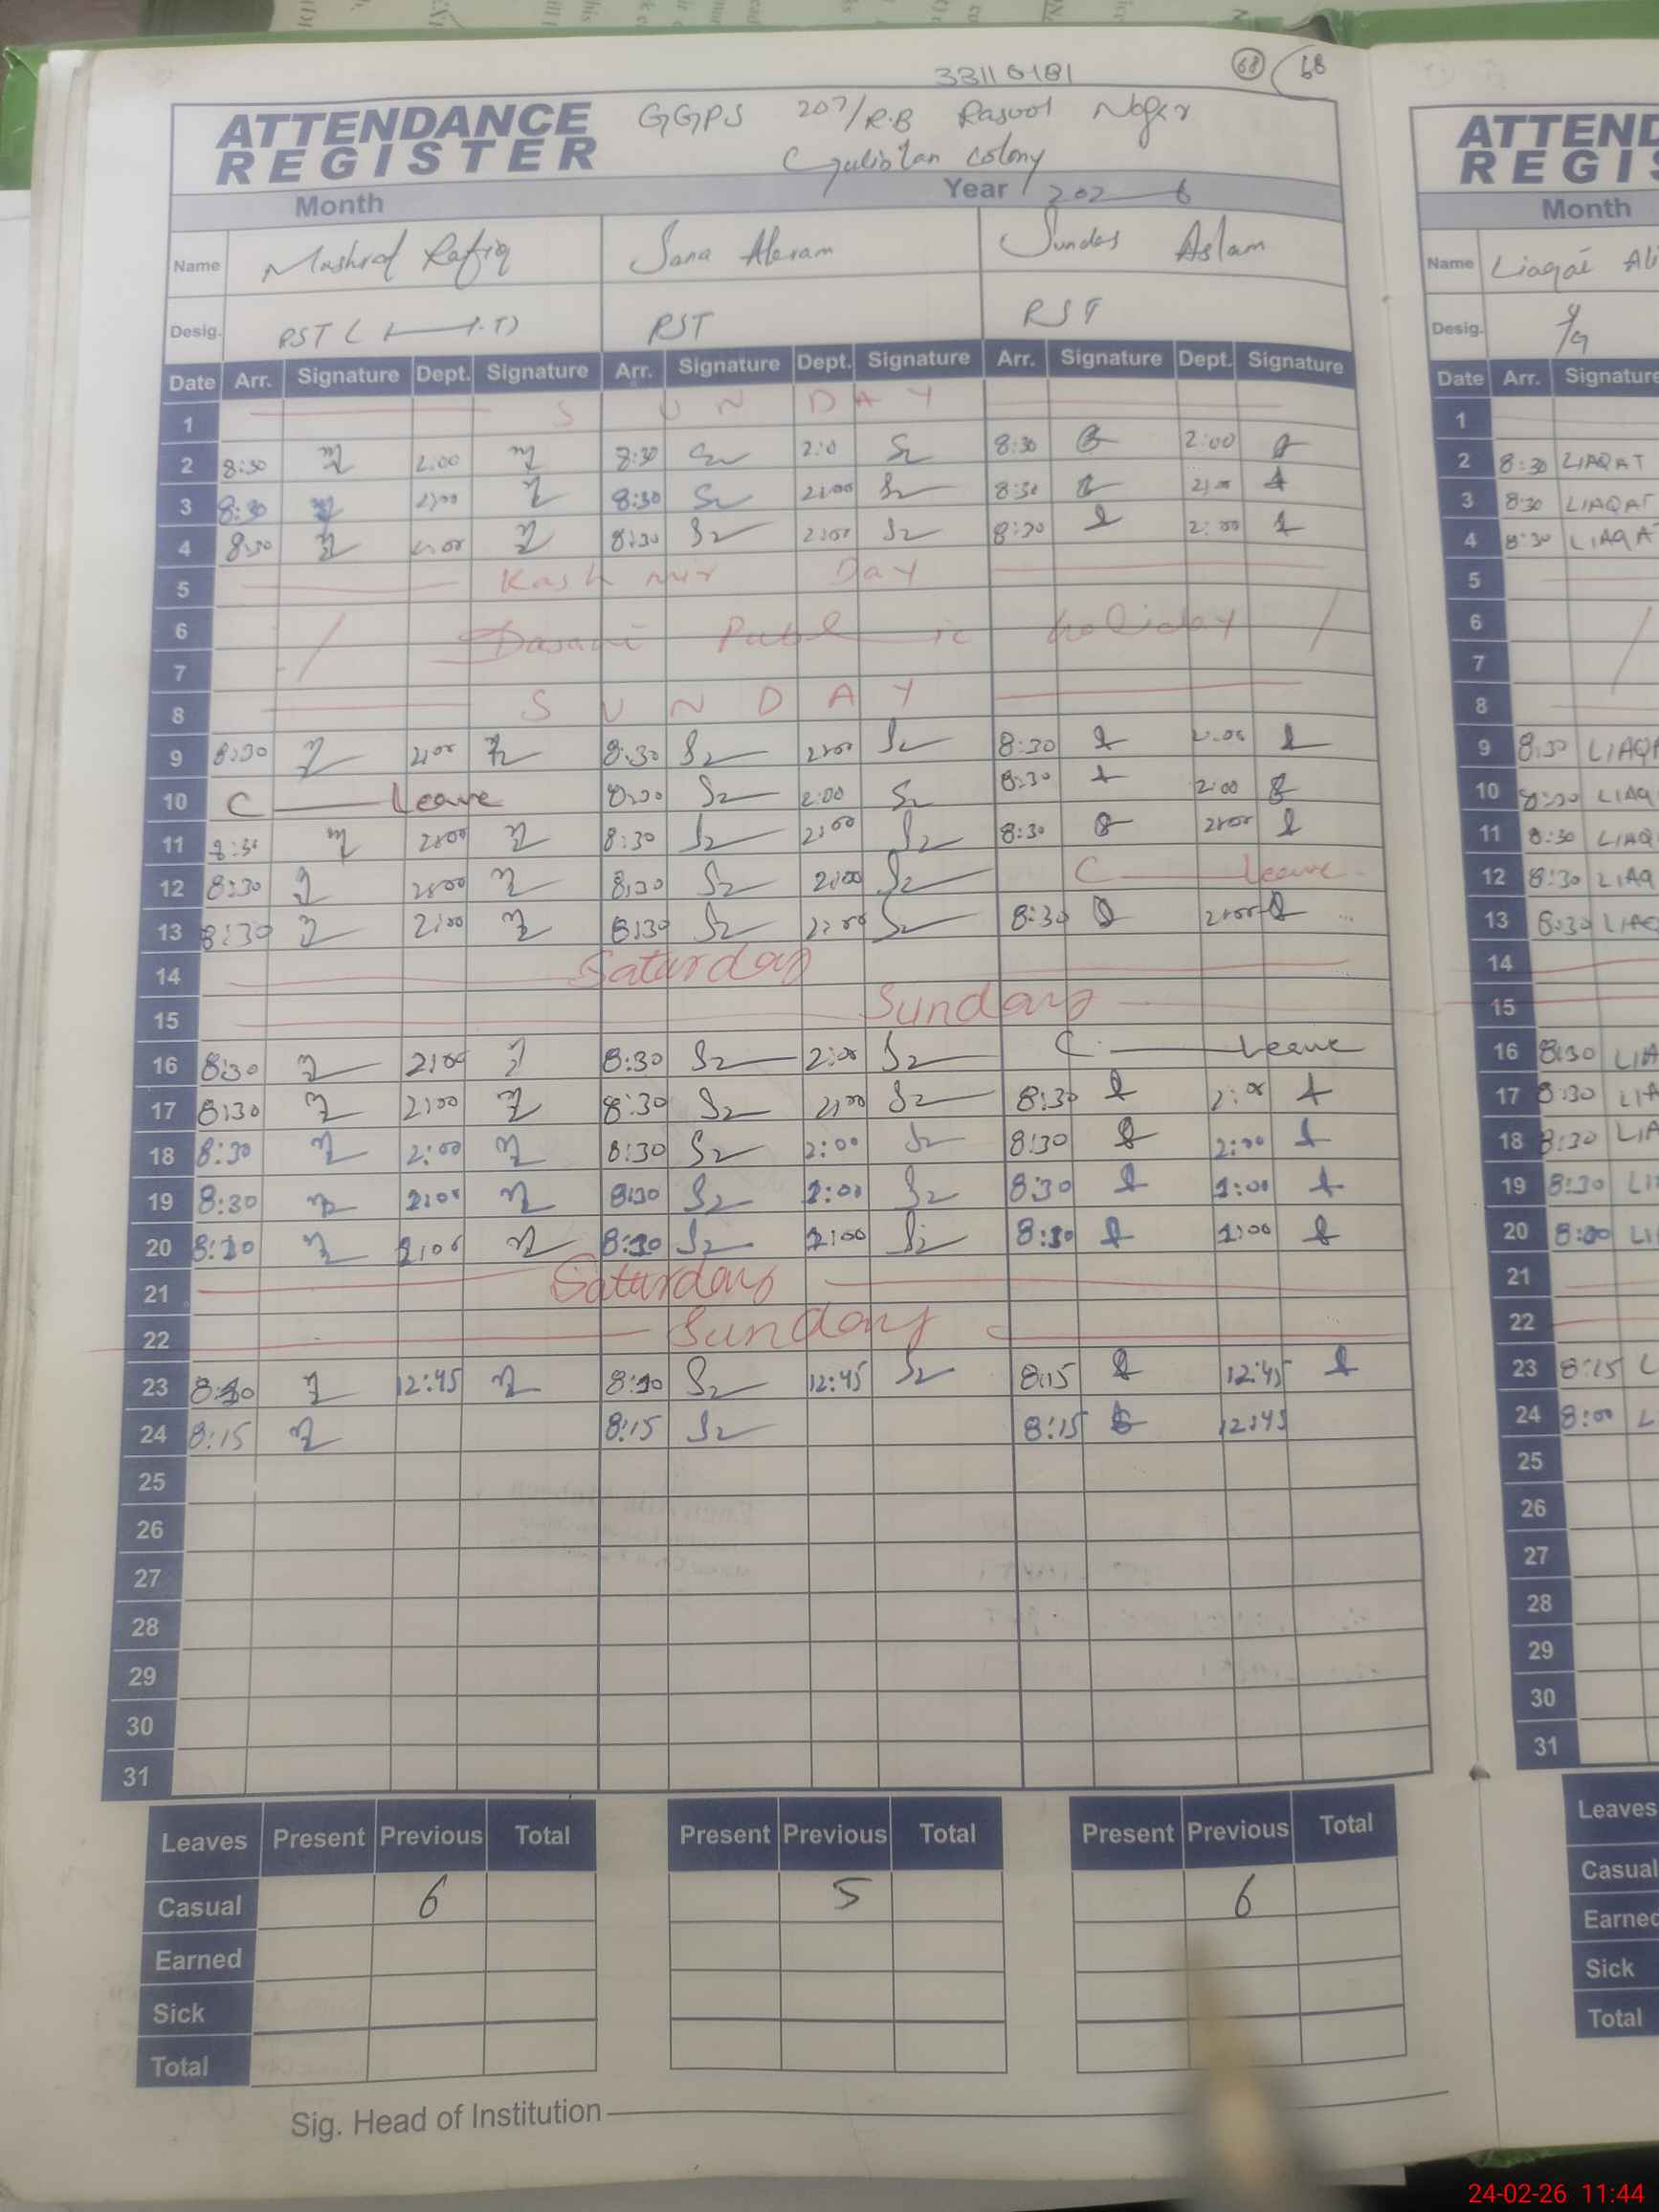 33110181 68 68
ATTENDANCE REGISTER
GGPS 207/R.B Rasool Nager
Gulistan colony
Month Year 2026
Name Mashraf Rafiq Sana Akram Sundas Aslam
Desig. PST PST PST
Date Arr. Signature Dept. Signature Arr. Signature Dept. Signature Arr. Signature Dept. Signature
1 SUNDAY
2 8:30 2:00 8:30 2:0 8:30 2:00
3 8:30 2:00 8:30 2:00 8:30 2:00
4 8:30 2:00 8:30 2:00 8:30 2:00
5 Kashmir Day
6 Basant Public holiday
7
8 SUNDAY
9 8:30 2:00 8:30 2:00 8:30 2:00
10 C Leave 8:30 2:00 8:30 2:00
11 8:30 2:00 8:30 2:00 8:30 2:00
12 8:30 2:00 8:30 2:00 C Leave
13 8:30 2:00 8:30 2:00 8:30 2:00
14 Saturday
15 Sunday
16 8:30 2:00 8:30 2:00 C Leave
17 8:30 2:00 8:30 2:00 8:30 2:00
18 8:30 2:00 8:30 2:00 8:30 2:00
19 8:30 2:00 8:30 2:00 8:30 2:00
20 8:30 2:00 8:30 2:00 8:30 2:00
21 Saturday
22 Sunday
23 12:45 12:45 8:15 12:45
24 8:15 8:15 8:15 12:45
25
26
27
28
29
30
31
Leaves Present Previous Total Present Previous Total Present Previous Total
Casual 6 5 6
Earned
Sick
Total
Sig. Head of Institution
ATTEND
REGIS
Month
Name Liaqat Ali
Desig.
Date Arr. Signature
1
2 8:30 LIAQAT
3 8:30 LIAQAT
4 8:30 LIAQAT
5
6
7
8
9 8:30 LIAQA
10 8:30 LIAQ
11 8:30 LIAQ
12 8:30 LIAQ
13 8:30 LIAQ
14
15
16 8:30 LIA
17 8:30 LIA
18 8:30 LIA
19 8:30 LI
20 8:00 LI
21
22
23 8:15 L
24 8:00 L
25
26
27
28
29
30
31
Leaves
Casual
Earned
Sick
Total
24-02-26 11:44